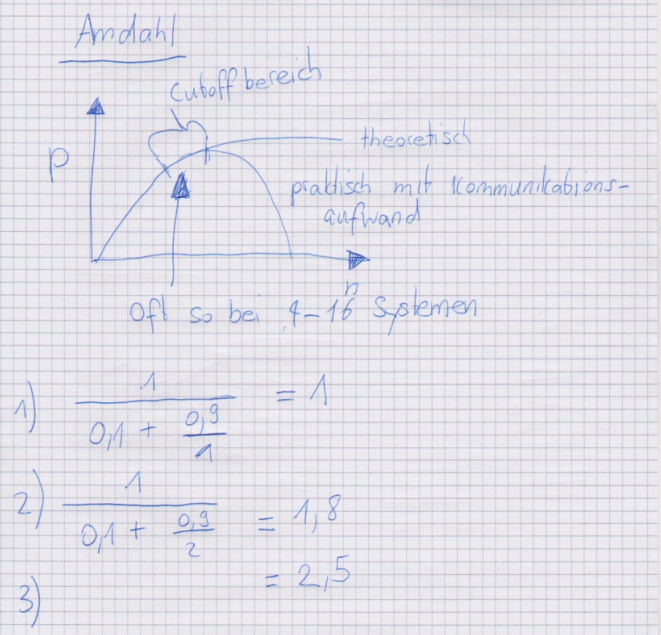 Amdahl
Cutoffbereich
theoretisch
P
praktisch mit Kommunikations-
aufwand
n
Oft so bei 4-16 Systemen
1) 1 / (0,1 + 0,9/1) = 1
2) 1 / (0,1 + 0,9/2) = 1,8
3) = 2,5